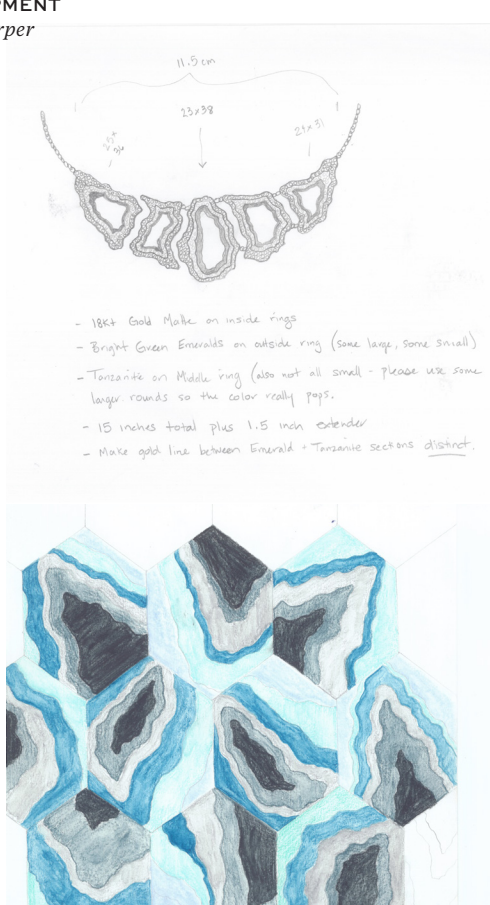 PMENT
rper
11.5cm
23x38
29x31
- 18Kt Gold Matte on inside rings
- Bright Green Emeralds on outside ring (some large, some small)
- Tanzanite on Middle ring (also not all small - please use some
larger rounds so the color really pops.
- 15 inches total plus 1.5 inch extender
- Make gold line between Emerald + Tanzanite sections distinct.